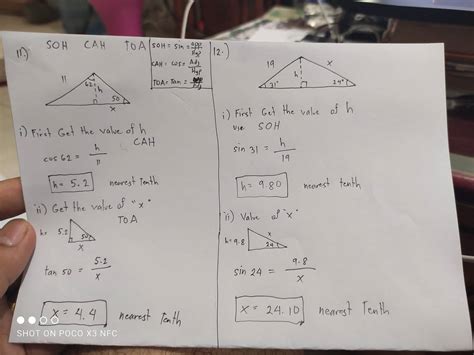 11.) SOH CAH TOA
SOH = sin = opp/Hyp
CAH = cos = Adj/Hyp
TOA = Tan =
11
62
h
50
x
i) First Get the value of h
CAH
cos 62 = h/11
h = 5.2 nearest tenth
ii) Get the value of "x"
TOA
h = 5.2
50
x
tan 50 = 5.2/x
x = 4.4 nearest Tenth
12.)
19
x
h
31°
24°
i) First Get the value of h
use SOH
sin 31 = h/19
h = 9.80 nearest tenth
ii) Value of "x"
h = 9.8
x
24
sin 24 = 9.8/x
x = 24.10 nearest Tenth
SHOT ON POCO X3 NFC